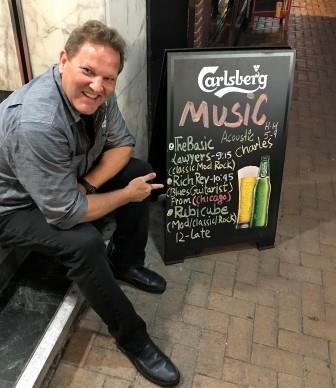 Carlsberg
MUSIC
Acoustic H-H
Charles 5-9
The Basic
Lawyers - 9:15
(classic Mod Rock)
Rich Rey - 10:45
(Blues Guitarist)
From (Chicago)
Rubicube
(Mod/classic/Rock)
12-Late